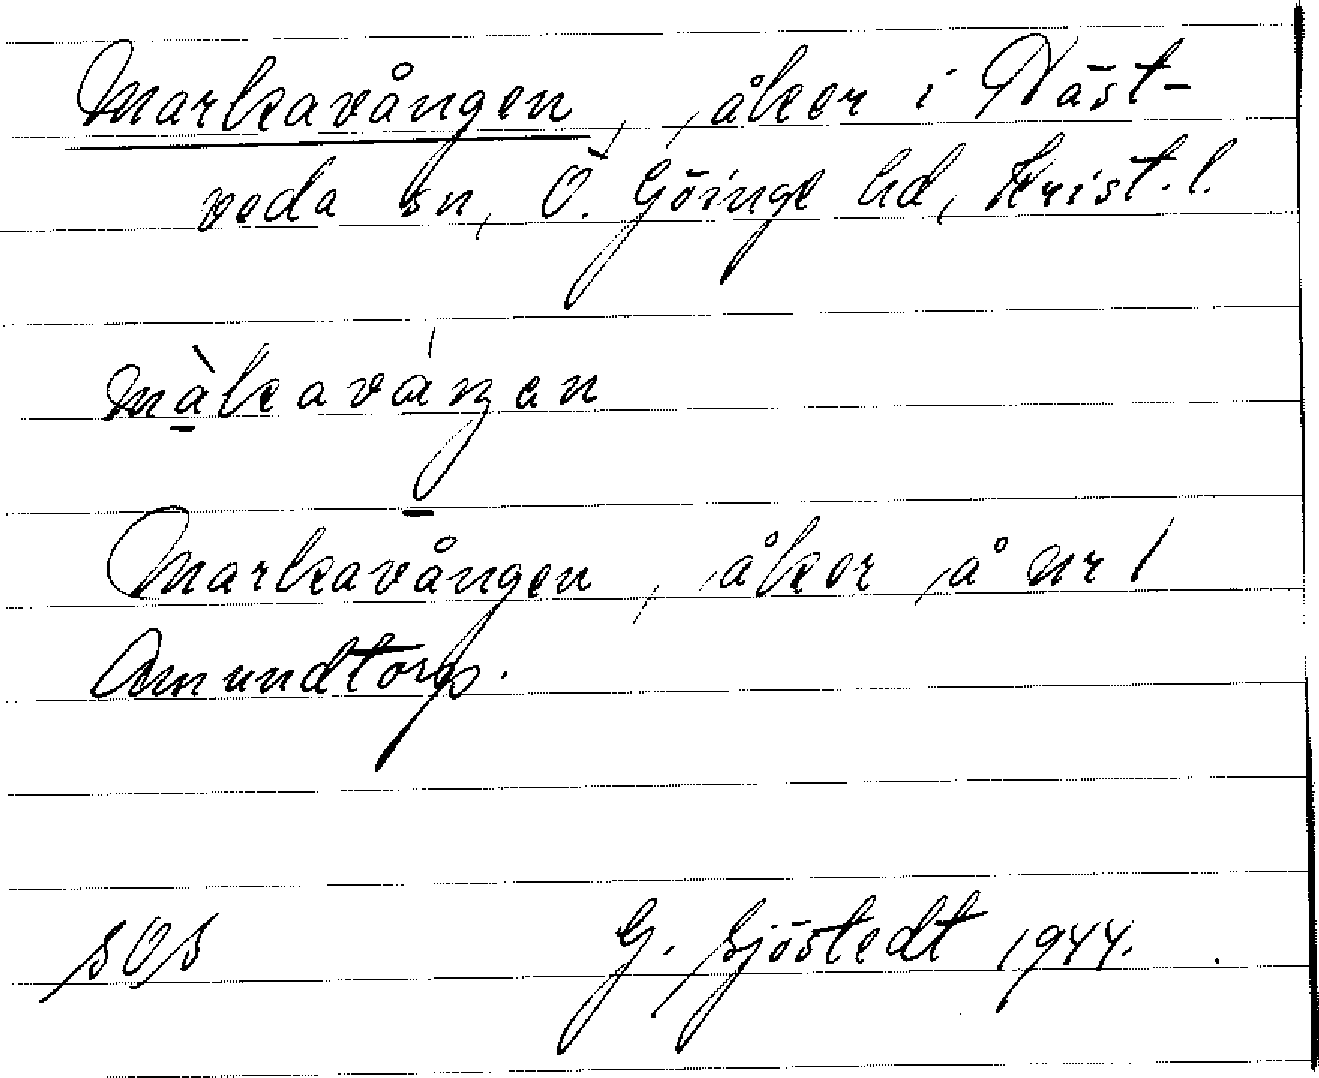 Markavången, åker i Näst-
veda sn, Ö. Göinge hd, Krist. l.
màkaváŋen
Markavången, åker å nr 1
Amundtorp.
SOS G. Sjöstedt 1944.